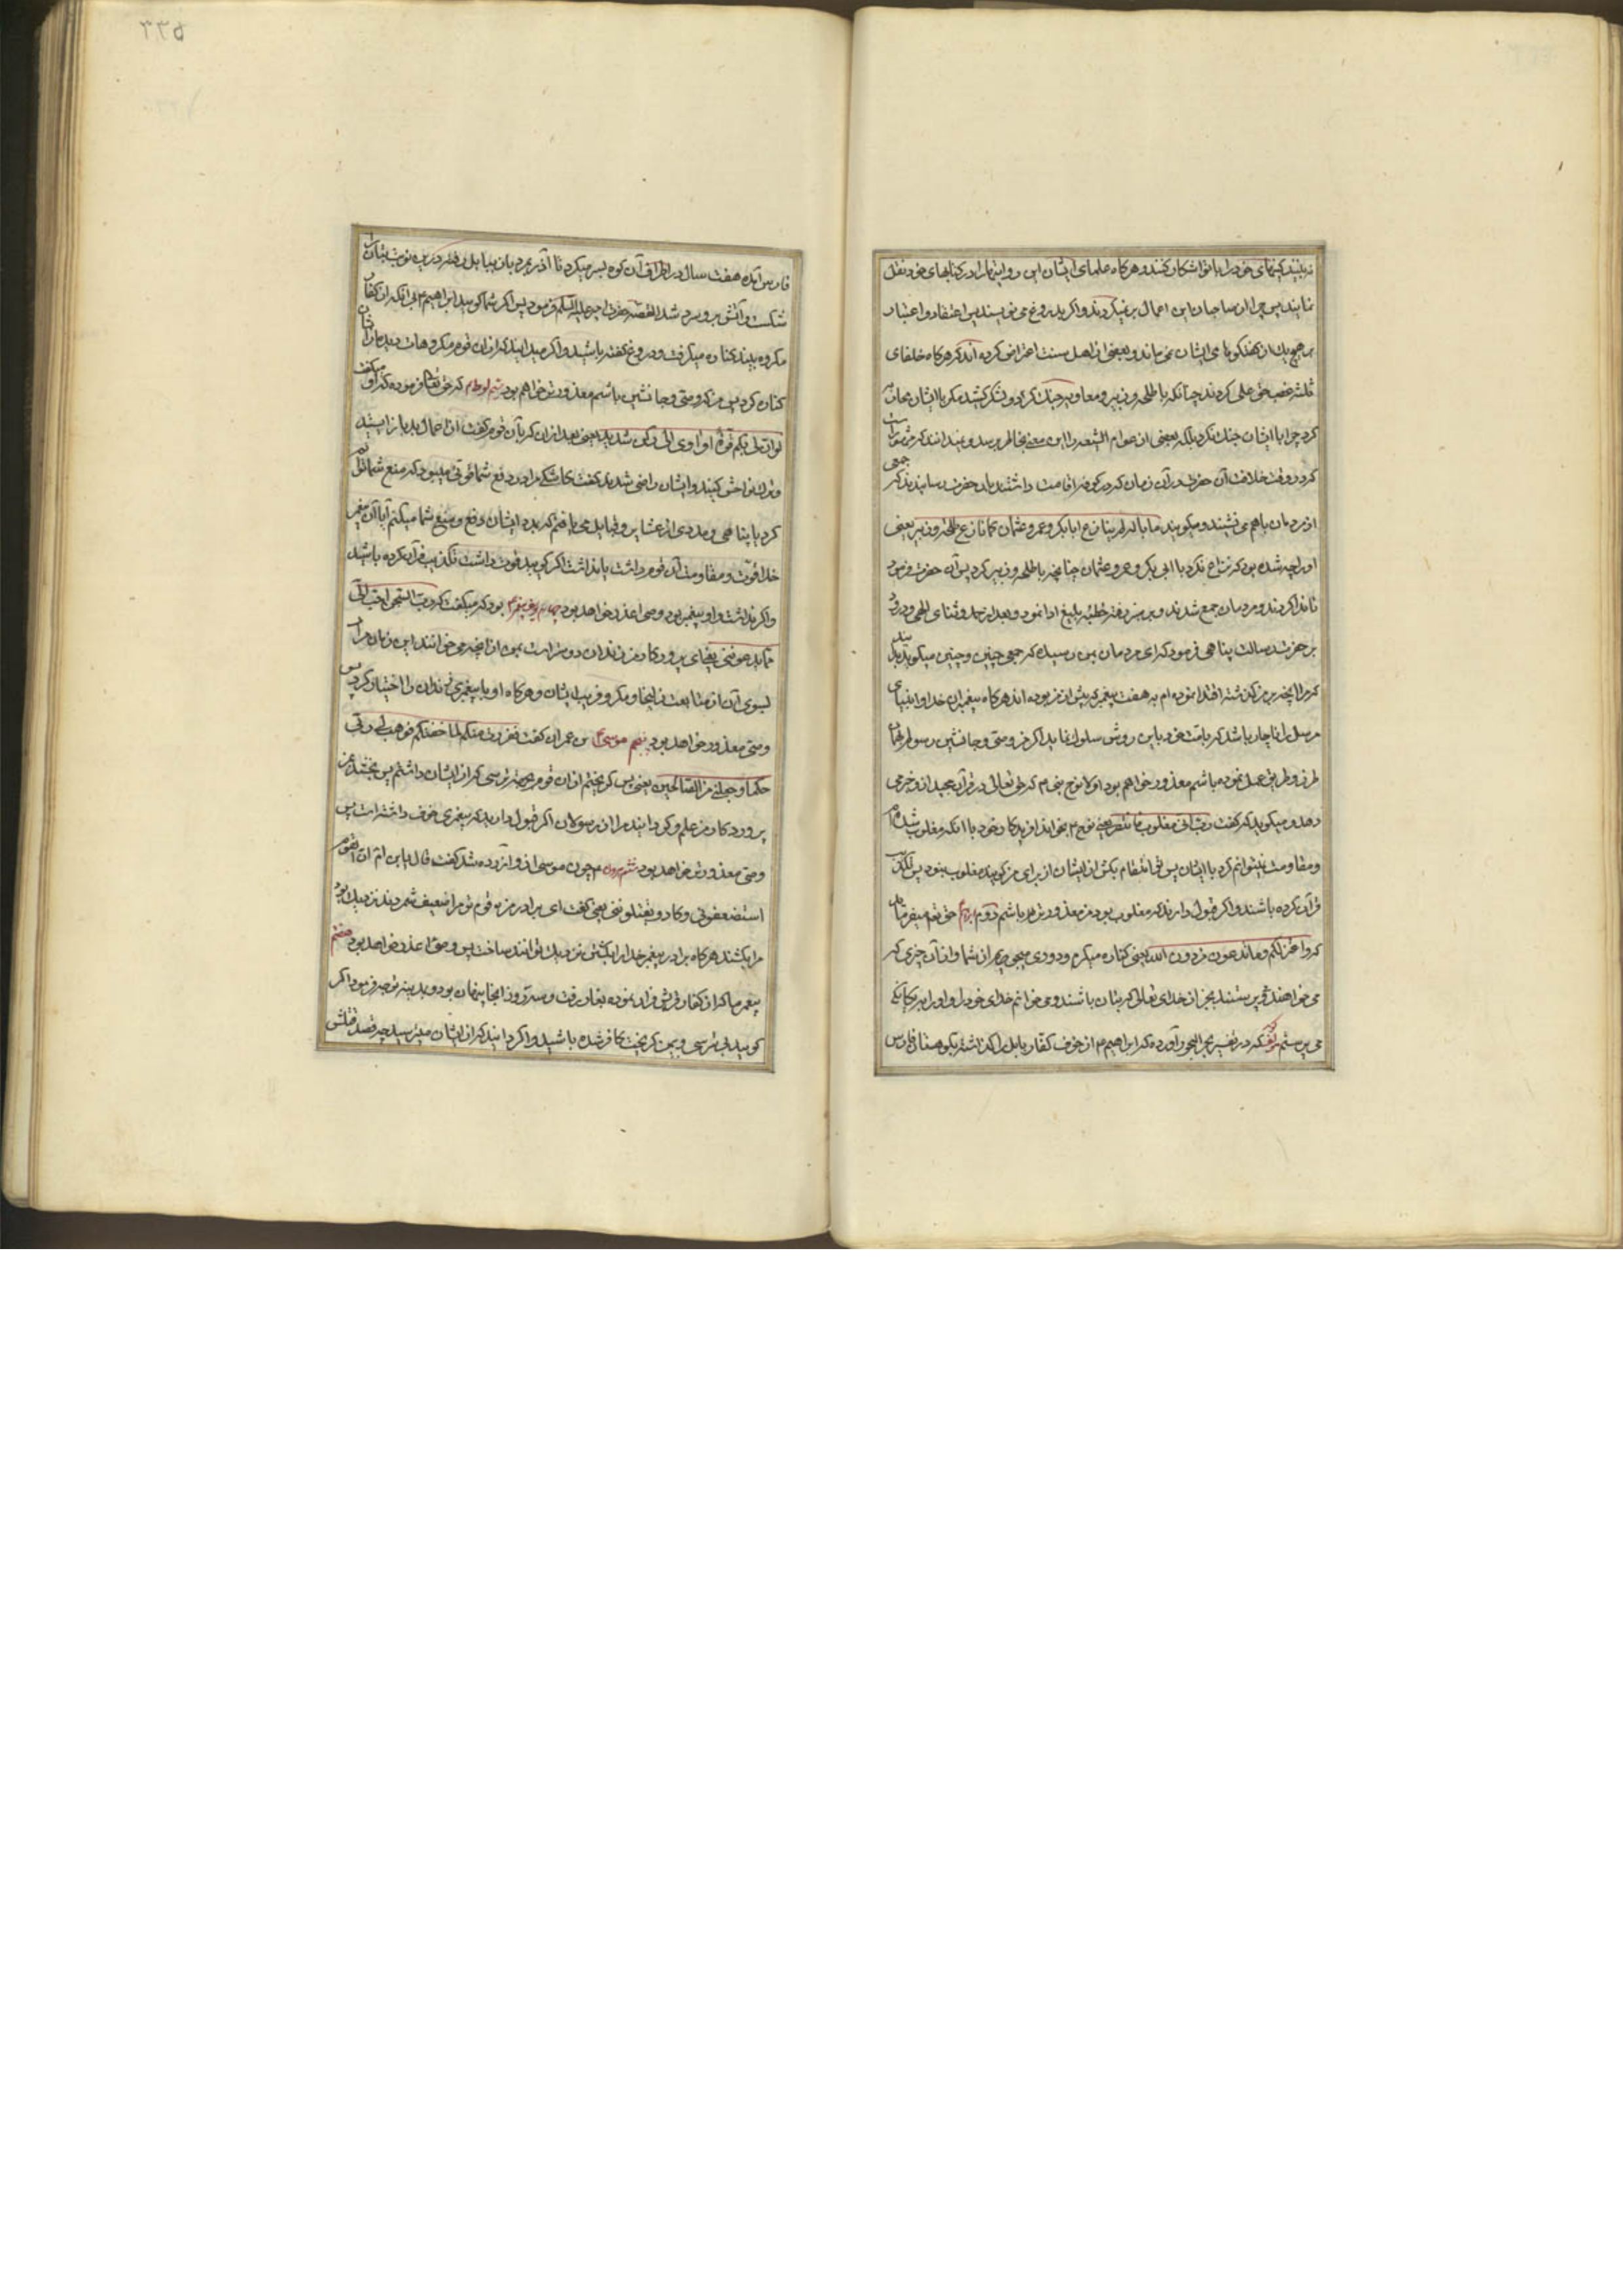 نمایند پس چرا از صاحبان این اعمال برنمیگردند و اگر دروغ می نویسند پس اعتقاد و اعتبار
بر هیچ یک از گفتگوهای ایشان نمی ماند و بعضی از اهل سنت اعتراض کرده اند که هرگاه خلفای
ثلثه غصب حق علی کردند چنانکه با طلحه و زبیر و معاویه جنک کرد و لشکر کشید مگر با ایشان محابا
کرد چرا با ایشان جنک نکرد بلکه بعضی از عوام الشیعه را این معنی بخاطر میرسد و نمیدانند که
کرد در وقت خلافت آن حضرت در آن زمان که در کوفه اقامت داشتند بآن حضرت رسانیدند که جمعی
از مردمان باهم می نشینند و میگویند ما باله لم ینازع ابابکر و عمر و عثمان کما نازع طلحه و زبیر یعنی
او را چه شده بود که نزاع نکرد با ابی بکر و عمر و عثمان چنانچه با طلحه و زبیر کرد پس آن حضرت فرمود
تا ندا کردند و مردمان جمع شدند و بر منبر رفته خطبه بلیغ ادا نمود و بعد از حمد و ثنای الهی و درود
بر حضرت رسالت پناهی فرمود که ای مردمان بمن رسیده که جمعی چنین و چنین میگویند
که مرا آنچه بر من گذشته اقتدا نموده ام به هفت پیغمبر که پیش از من بوده اند هرگاه پیغمبران خدا و انبیای
مرسل را ناچار باشد که بامت خود باین روش سلوک نماید اگر من وصی و جانشین رسولم بهمان
طرز و طریق عمل نموده باشم معذور خواهم بود اولا نوح نبی ۴ که حق تعالی در قرآن مجید از و خبر می
دهد و میگوید که گفت رب انی مغلوب فانتصر یعنی نوح ۴ بخواند آفریدکار خود با آنکه مغلوب شده ام
و مقاومت نمیتوانم کرد با ایشان پس توانتقام بکش از ایشان از برای من گویید مغلوب نبود پس تکذیب
قرآن کرده باشند و اگر قبول دارند که مغلوب بود من معذورتر باشم دوم ابراهیم حق تعم میفرماید
که و اعتزلکم و ما تدعون من دون الله یعنی کناره میگیرم و دوری میجویم از شما و از آن چیزی که
می خواهند و می پرستند بجز از خدای تعالی که بتان باشند و می خوانم خدای خود را و او را بیگانگی
می پرستم که در تفسیر بحر البحور آورده که ابراهیم ۴ از خوف کفار بابل را گذاشته بکوهستان فارس
فارس آمده هفت سال در اطراف آن کوه بسر میکرد تا آذر بمرد باز ببابل رفته درین نوبت بتان را
شکست و آتش برو سرد شد القصه حضرت امیر علیه السلم فرمود پس اگر شما گویید ابراهیم ۴ بی آنکه از کفار
مکروه بیند کناره میگرفت دروغ گفته باشید و اگر میدانید که از آن قوم مکروهات دید
کناره کرد پس من که وصی و جانشین باشم معذورتر خواهم بود سیم لوط ۴ که حق تعالی فرموده که او میگفت
لو ان لی بکم قوة او آوی الی رکن شدید یعنی بعد از آن که بآن قوم گفت از اعمال بد باز ایستید
و ترک فواحش کنید و ایشان راضی نشدند گفت کاشکی مرا در دفع شما قوتی میبود که منع شما توانم
کرد یا پناهی و مددی از عشایر و قبایل می یافتم که بمدد ایشان دفع و منع شما میکردم آیا آن پیغمبر
خدا قوت و مقاومت آن قوم داشت یا نداشت اگر گویید قوت داشت تکذیب قرآن کرده باشید
و اگر نداشت و او پیغمبر بود وصی اعذر خواهد بود چهارم یوسف پیغمبر ۴ بود که میگفت که رب السجن احب الی
مما یدعوننی الیه یعنی ای پروردکار من زندان دوستر است بمن از آنچه می خوانند این زنان مرا
بسوی آن از متابعت زلیخا و مکر و فریب ایشان و هرگاه او با پیغمبری زندان را اختیار کرد پس
وصی معذور خواهد بود پنجم موسی بن عمران گفت ففررت منکم لما خفتکم فوهب لی ربی
حکما و جعلنی من الصالحین یعنی پس گریختم از آن قوم بجهة ترسی که از ایشان داشتم پس بخشید
پروردکار من علم و گردانید مرا از رسولان اگر قبول دارید که پیغمبری خوف داشته است پس
وصی معذورتر خواهد بود ششم هرون ۴ چون موسی از و آزرده شد گفت قال یابن ام ان القوم
استضعفونی و کادوا یقتلوننی یعنی گفت ای برادر من قوم تو مرا ضعیف شمردند نزدیک بود
مرا بکشند هرگاه برادر پیغمبر خدا را بکشتن نزدیک توانند ساخت پس وصی اعذر خواهد بود هفتم
پیغمبر ما که از کفار قریش فرار نموده بغار رفت و سه روز آنجا پنهان بود و بمدینه توجه فرمود اگر
گویید بی ترسی و بیمی گریخت کافر شده باشید و اگر دانید که از ایشان میترسید چه قصد قتلش